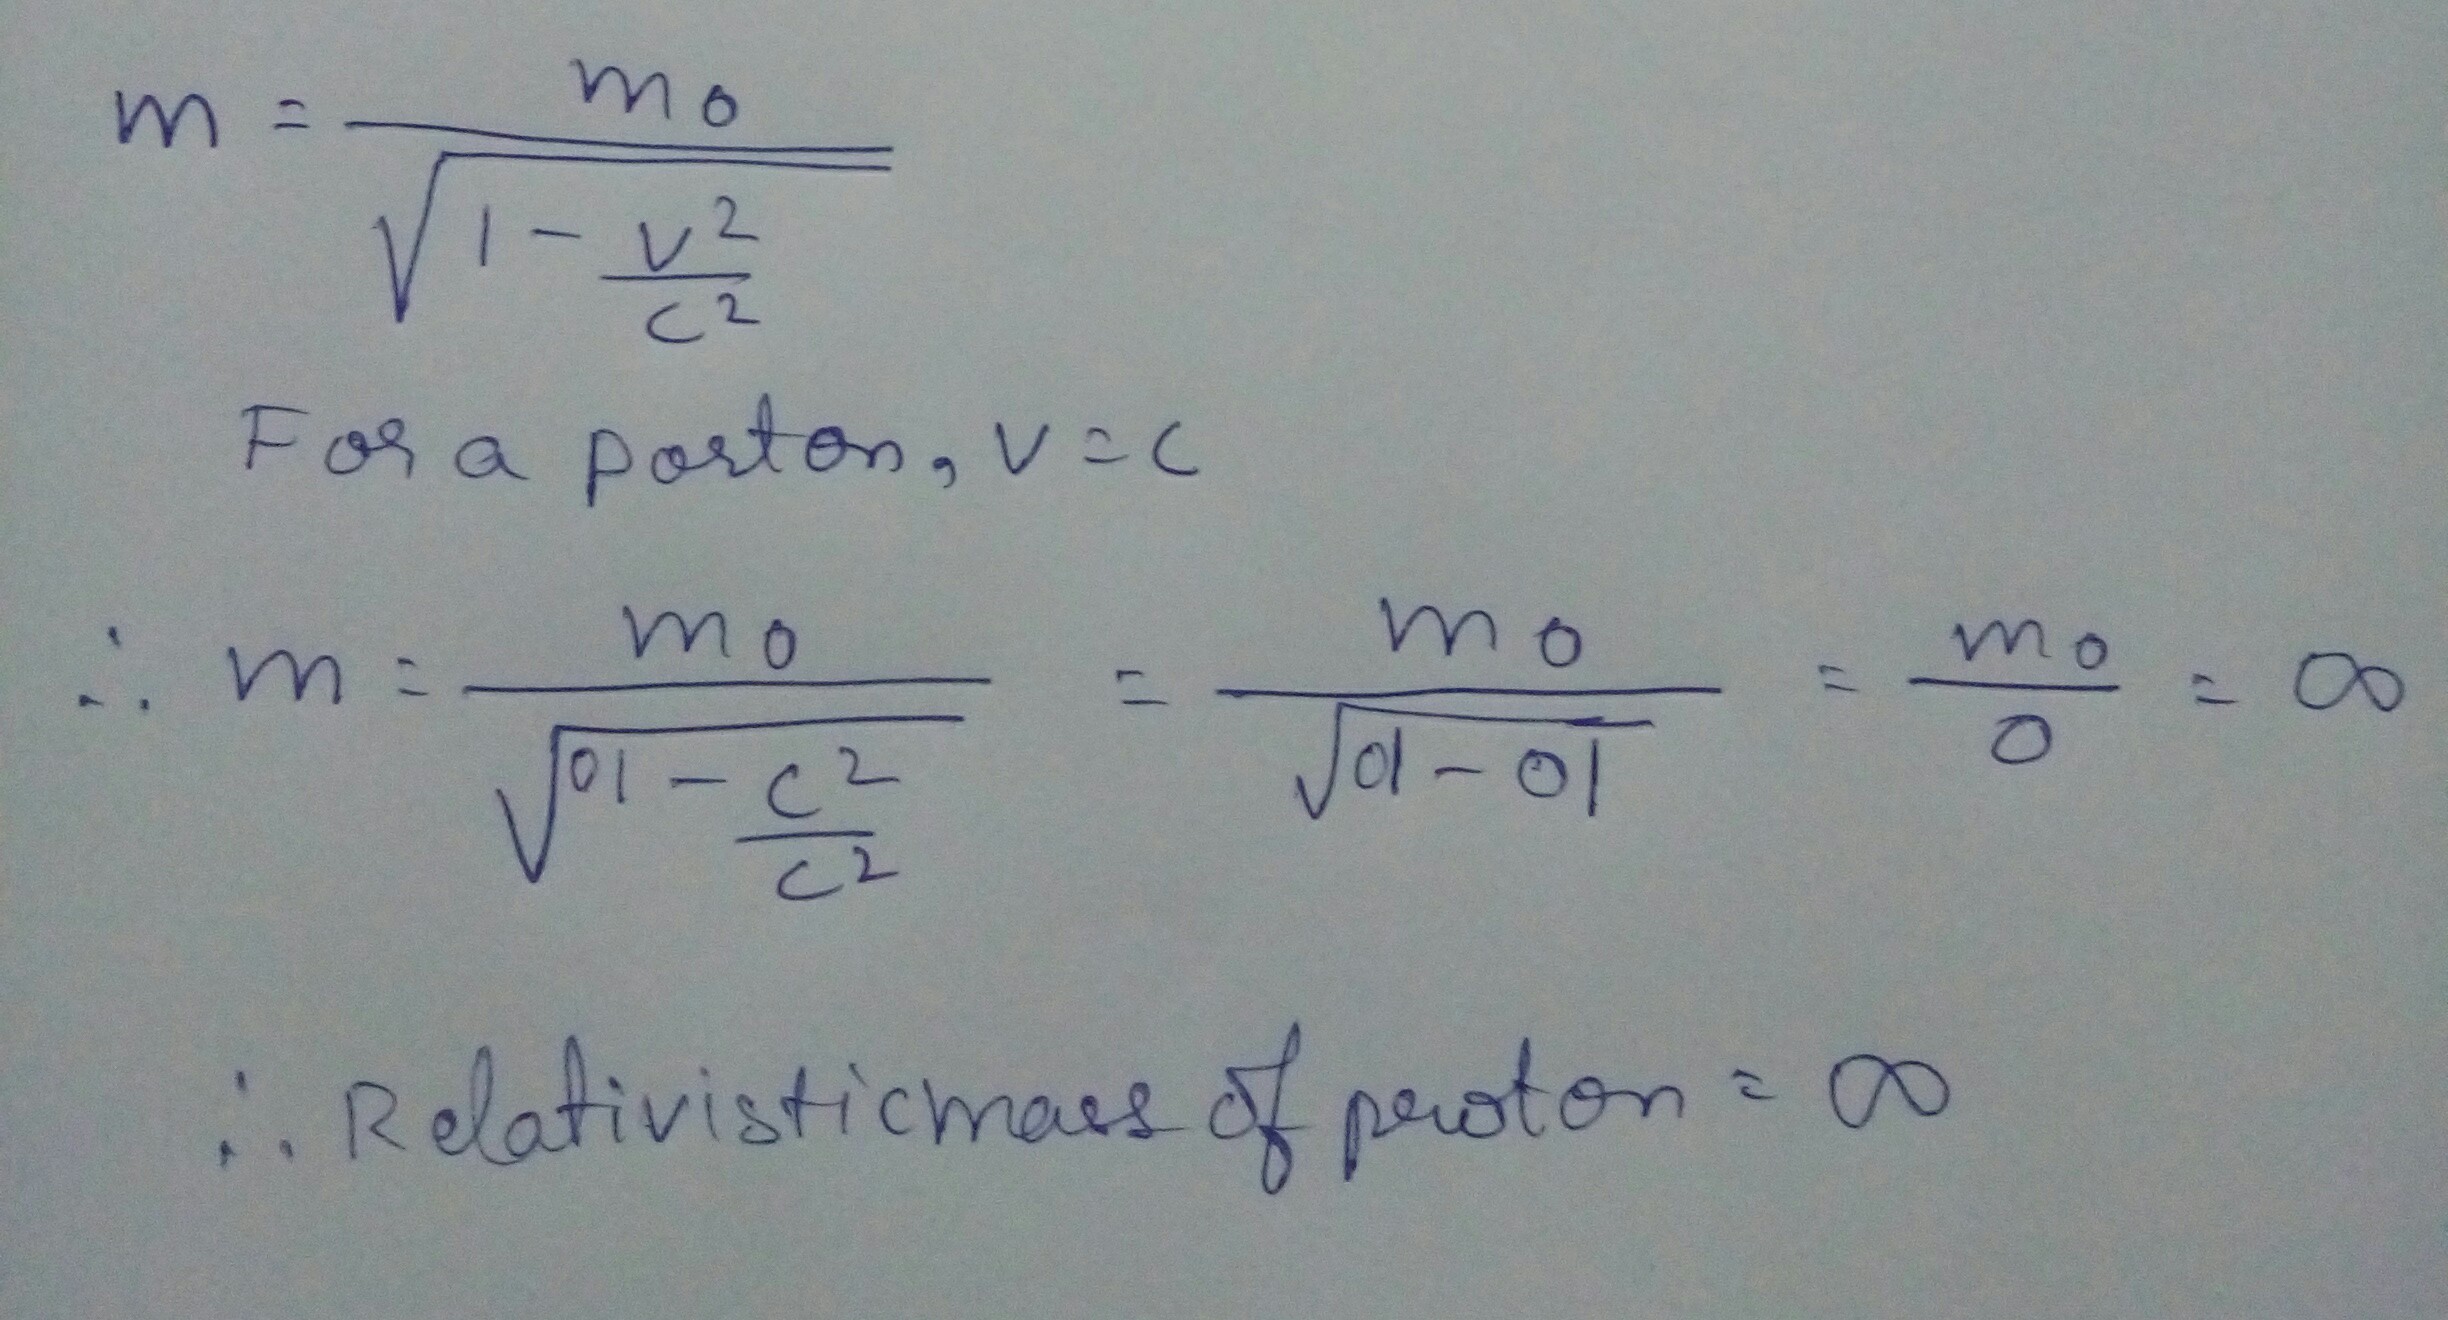 m = m0 / √(1 - v²/c²)
For a porton, v = c
∴ m = m0 / √(01 - c²/c²) = m0 / √(01 - 01) = m0 / 0 = ∞
∴ Relativistic mass of proton = ∞